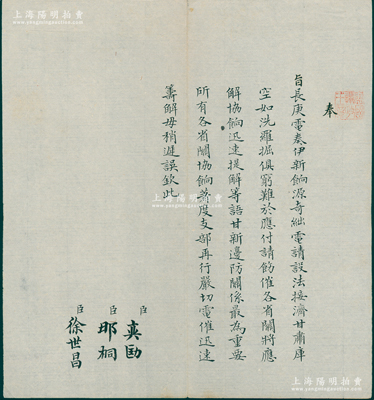 上海陽明拍賣
www.yangmingauction.com
奉
旨長庚電奏伊新餉源奇絀電請設法接濟甘肅庫
空如洗羅掘俱窮難於應付請飭催各省關將應
解協餉迅速提解等語甘新邊防關係最為重要
所有各省關協餉著度支部再行嚴切電催迅速
籌解毋稍遲誤欽此
臣奕劻
臣那桐
臣徐世昌
上海陽明拍賣
www.yangmingauction.com